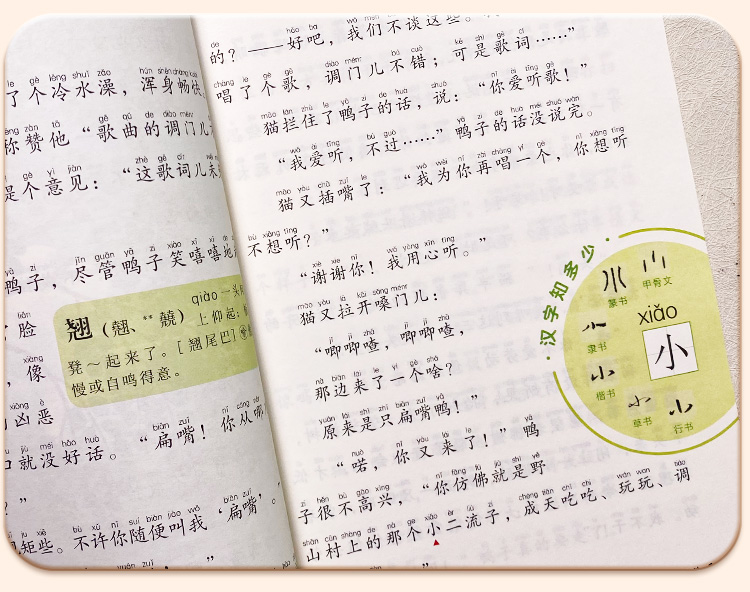 了个冷水澡，浑身畅快
你赞他“歌曲的调门儿
是个意见：“这歌词儿
鸭子，尽管鸭子笑嘻嘻地
翘 qiào 一头
上仰起：
凳～起来了。[翘尾巴]
慢或自鸣得意。
脸
，像
凶恶
就没好话。“扁嘴！你从哪
？”
矩些。不许你随便叫我‘扁嘴’。
的？——好吧，我们不谈这些。
唱了个歌，调门儿不错；可是歌词……”
猫拦住了鸭子的话，说：“你爱听歌！”
“我爱听，不过……”鸭子的话没说完。
猫又插嘴了：“我为你再唱一个，你想听
不想听？”
“谢谢你！我用心听。”
猫又拉开嗓门儿：
“唧唧喳，唧唧喳，
那边来了一个啥？
原来是只扁嘴鸭！”
“喏，你又来了！”鸭
子很不高兴，“你仿佛就是野
山村上的那个小二流子，成天吃吃、玩玩、调
·汉字知多少·
甲骨文
篆书
隶书
楷书
草书
行书
xiǎo
小